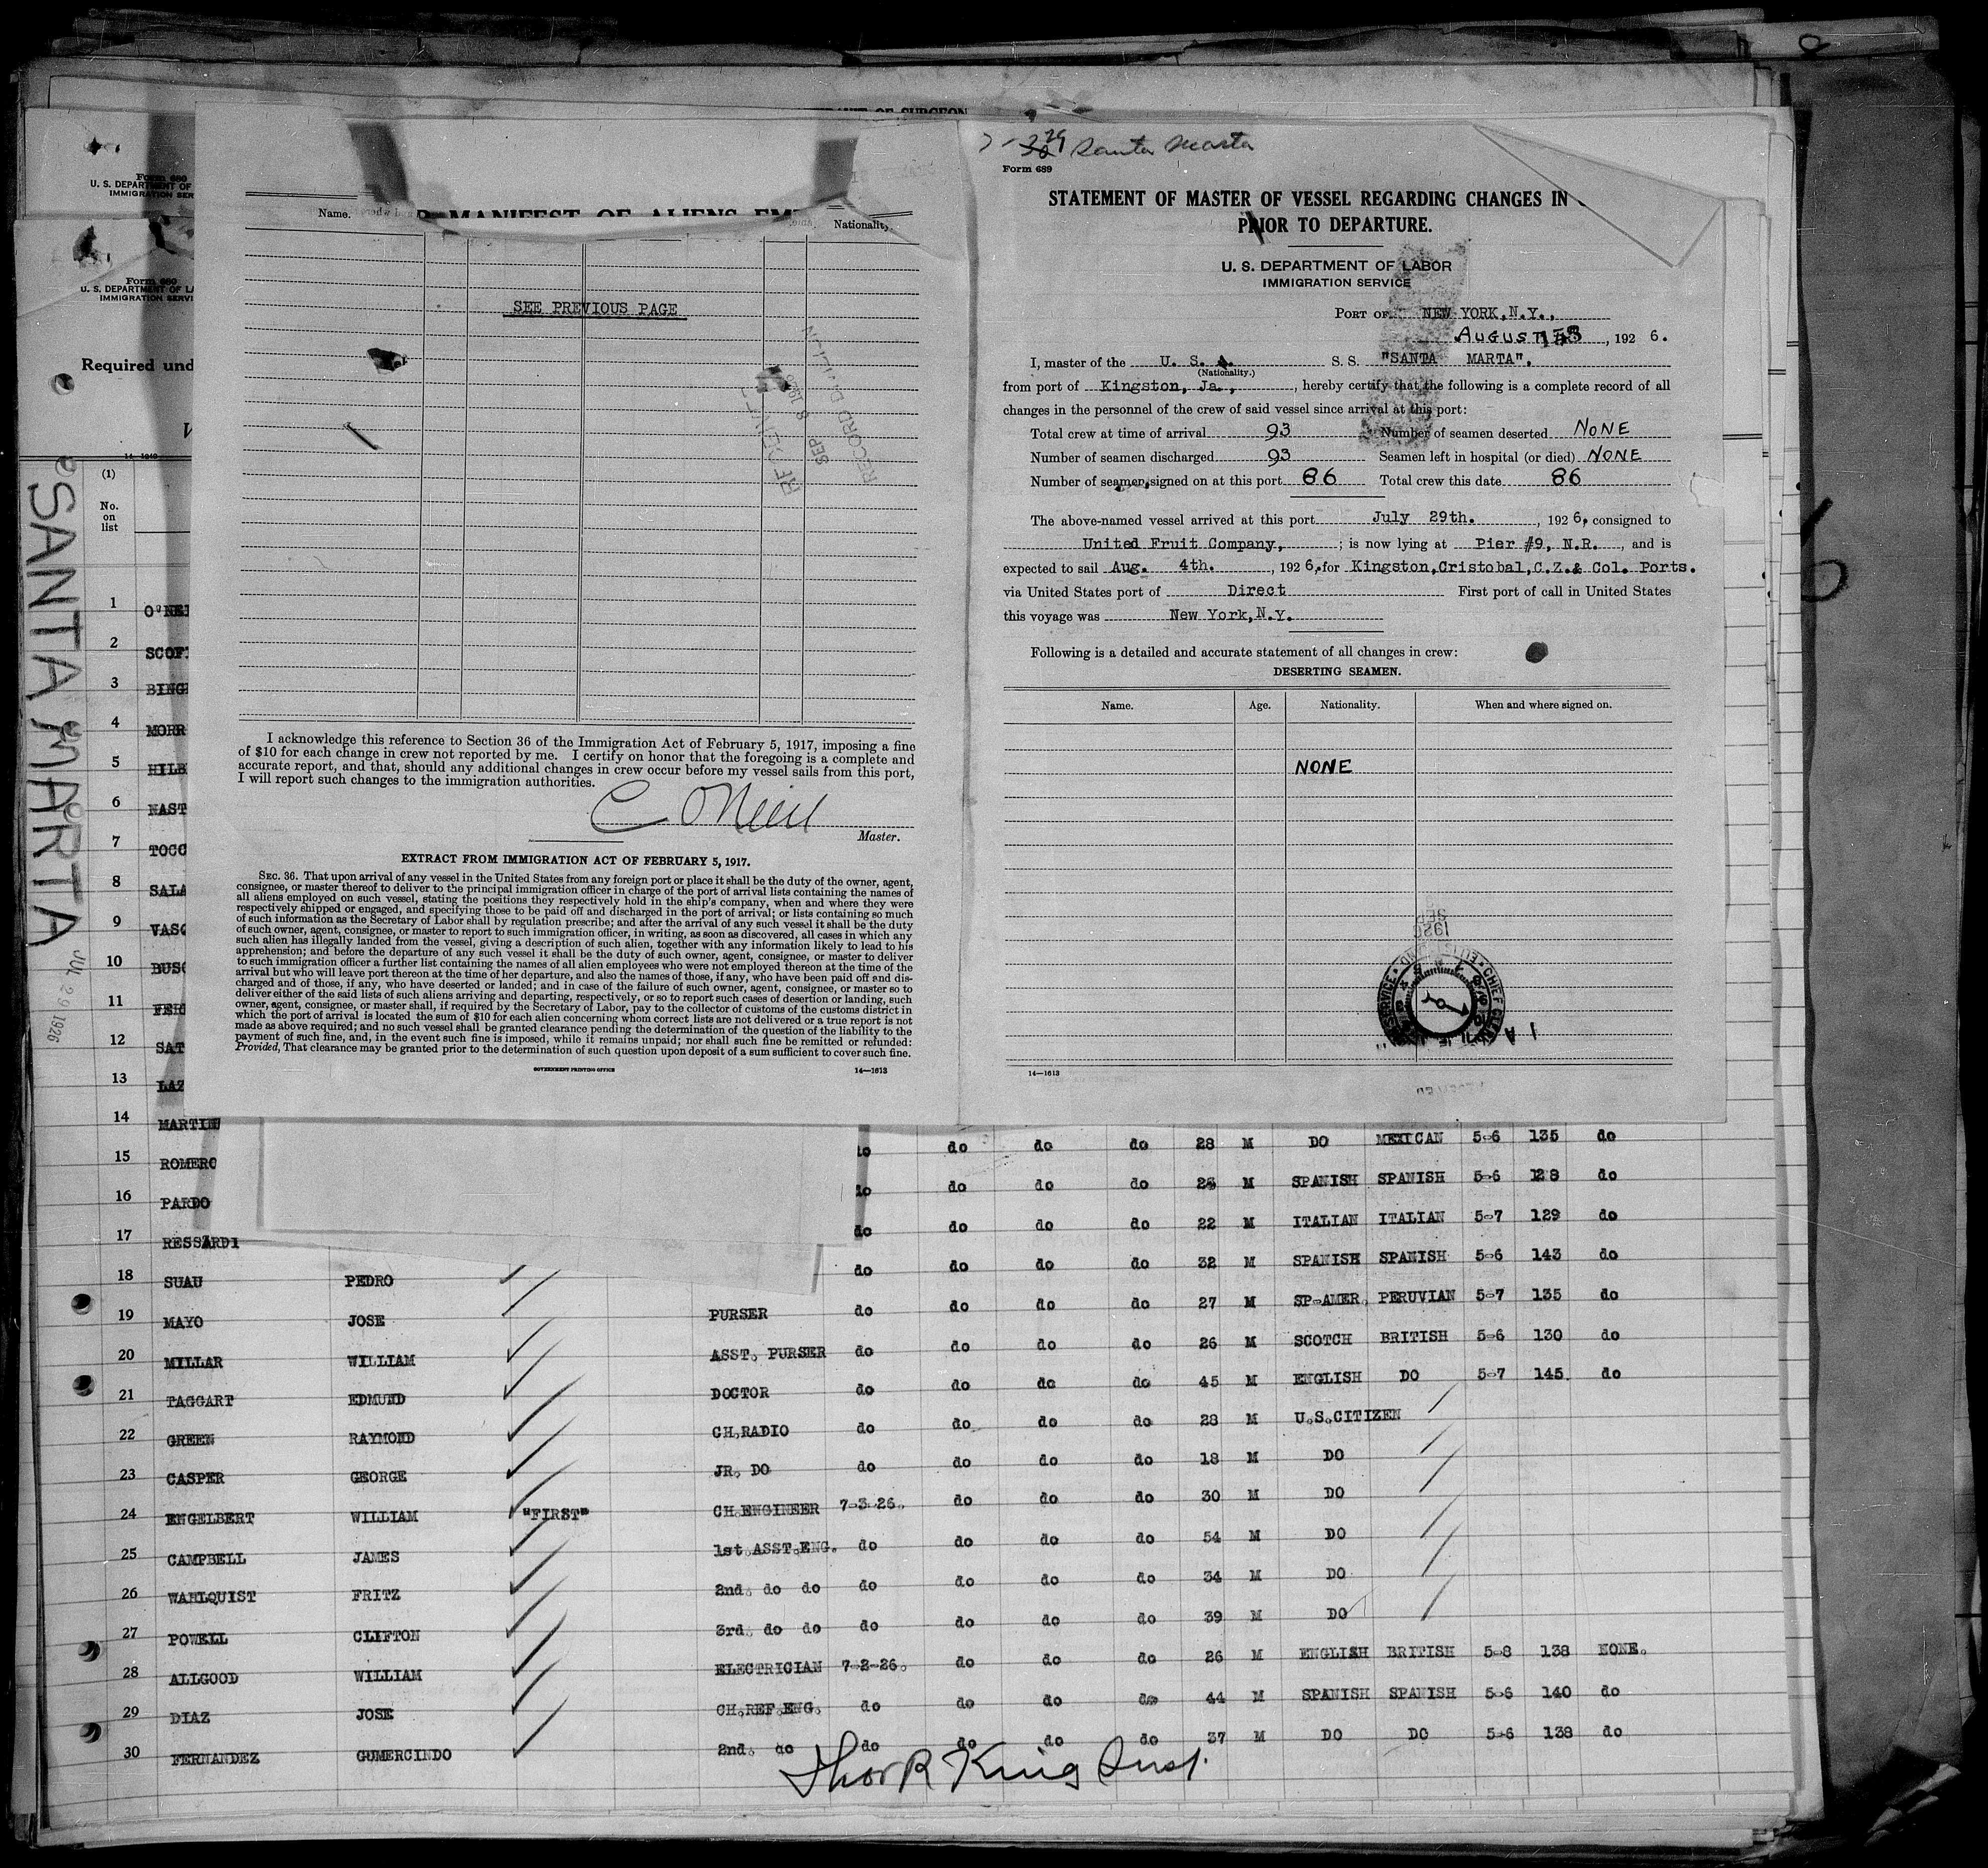 OF SURGEON
Form 680
U. S. DEPARTMENT OF
IMMIGRATION SER
Form 680
U. S. DEPARTMENT OF LA
IMMIGRATION SERVI
Required und
(1)
No.
on
list
SANTA MARTA
JUL 29 1926
MANIFEST OF ALIENS EM
Name.
Nationality
SEE PREVIOUS PAGE
SEP 8
RECORD DIV
I acknowledge this reference to Section 36 of the Immigration Act of February 5, 1917, imposing a fine
of $10 for each change in crew not reported by me. I certify on honor that the foregoing is a complete and
accurate report, and that, should any additional changes in crew occur before my vessel sails from this port,
I will report such changes to the immigration authorities.
C O'Neill
Master.
EXTRACT FROM IMMIGRATION ACT OF FEBRUARY 5, 1917.
SEC. 36. That upon arrival of any vessel in the United States from any foreign port or place it shall be the duty of the owner, agent,
consignee, or master thereof to deliver to the principal immigration officer in charge of the port of arrival lists containing the names of
all aliens employed on such vessel, stating the positions they respectively hold in the ship's company, when and where they were
respectively shipped or engaged, and specifying those to be paid off and discharged in the port of arrival; or lists containing so much
of such information as the Secretary of Labor shall by regulation prescribe; and after the arrival of any such vessel it shall be the duty
of such owner, agent, consignee, or master to report to such immigration officer, in writing, as soon as discovered, all cases in which any
such alien has illegally landed from the vessel, giving a description of such alien, together with any information likely to lead to his
apprehension; and before the departure of any such vessel it shall be the duty of such owner, agent, consignee, or master to deliver
to such immigration officer a further list containing the names of all alien employees who were not employed thereon at the time of the
arrival but who will leave port thereon at the time of her departure, and also the names of those, if any, who have been paid off and dis-
charged and of those, if any, who have deserted or landed; and in case of the failure of such owner, agent, consignee, or master so to
deliver either of the said lists of such aliens arriving and departing, respectively, or so to report such cases of desertion or landing, such
owner, agent, consignee, or master shall, if required by the Secretary of Labor, pay to the collector of customs of the customs district in
which the port of arrival is located the sum of $10 for each alien concerning whom correct lists are not delivered or a true report is not
made as above required; and no such vessel shall be granted clearance pending the determination of the question of the liability to the
payment of such fine, and, in the event such fine is imposed, while it remains unpaid; nor shall such fine be remitted or refunded:
Provided, That clearance may be granted prior to the determination of such question upon deposit of a sum sufficient to cover such fine.
GOVERNMENT PRINTING OFFICE
14—1613
29 Santa Marta
Form 689
STATEMENT OF MASTER OF VESSEL REGARDING CHANGES IN
PRIOR TO DEPARTURE.
U. S. DEPARTMENT OF LABOR
IMMIGRATION SERVICE
PORT OF NEW YORK, N.Y.,
AUGUST , 1926.
I, master of the U. S. A. S. S. "SANTA MARTA".
(Nationality.)
from port of Kingston, Ja., , hereby certify that the following is a complete record of all
changes in the personnel of the crew of said vessel since arrival at this port:
Total crew at time of arrival 93 Number of seamen deserted NONE
Number of seamen discharged 93 Seamen left in hospital (or died) NONE
Number of seamen signed on at this port 86 Total crew this date 86
The above-named vessel arrived at this port July 29th. , 1926, consigned to
United Fruit Company, ; is now lying at Pier #9, N.R. , and is
expected to sail Aug. 4th. , 1926, for Kingston, Cristobal, C.Z. & Col. Ports.
via United States port of Direct First port of call in United States
this voyage was New York, N.Y.
Following is a detailed and accurate statement of all changes in crew:
DESERTING SEAMEN.
Name. Age. Nationality. When and where signed on.
NONE
14—1613
1 O'NEI
2 SCOF
3 BING
4 MORR
5 HILB
6 NAST
7 TOCC
8 SALA
9 VASQ
10 BUSC
11 FER
12 SAT
13 LAZ
14 MARTIN do do do 28 M DO MEXICAN 5-6 135 do
15 ROMERO do do do 26 M SPANISH SPANISH 5-6 128 do
16 PARDO do do do do 22 M ITALIAN ITALIAN 5-7 129 do
17 RESSARDI do do do do 32 M SPANISH SPANISH 5-6 143 do
18 SUAU PEDRO do do do 27 M SP-AMER. PERUVIAN 5-7 135 do
19 MAYO JOSE PURSER do do do do 26 M SCOTCH BRITISH 5-6 130 do
20 MILLAR WILLIAM ASST. PURSER do do do do 45 M ENGLISH DO 5-7 145 do
21 TAGGART EDMUND DOCTOR do do do do 28 M U.S.CITIZEN
22 GREEN RAYMOND CH.RADIO do do do do 18 M DO
23 CASPER GEORGE JR. DO do do do do 30 M DO
24 ENGELBERT WILLIAM "FIRST" CH.ENGINEER 7-3-26. do do do 54 M DO
25 CAMPBELL JAMES 1st.ASST.ENG. do do do do 34 M DO
26 WAHLQUIST FRITZ 2nd. do do do do do do 39 M DO
27 POWELL CLIFTON 3rd. do do do do do do 26 M ENGLISH BRITISH 5-8 138 NONE.
28 ALLGOOD WILLIAM ELECTRICIAN 7-2-26. do do do 44 M SPANISH SPANISH 5-6 140 do
29 DIAZ JOSE CH.REF.ENG. do do do do 37 M DO DO 5-6 138 do
30 FERNANDEZ GUMERCINDO 2nd. do do
King